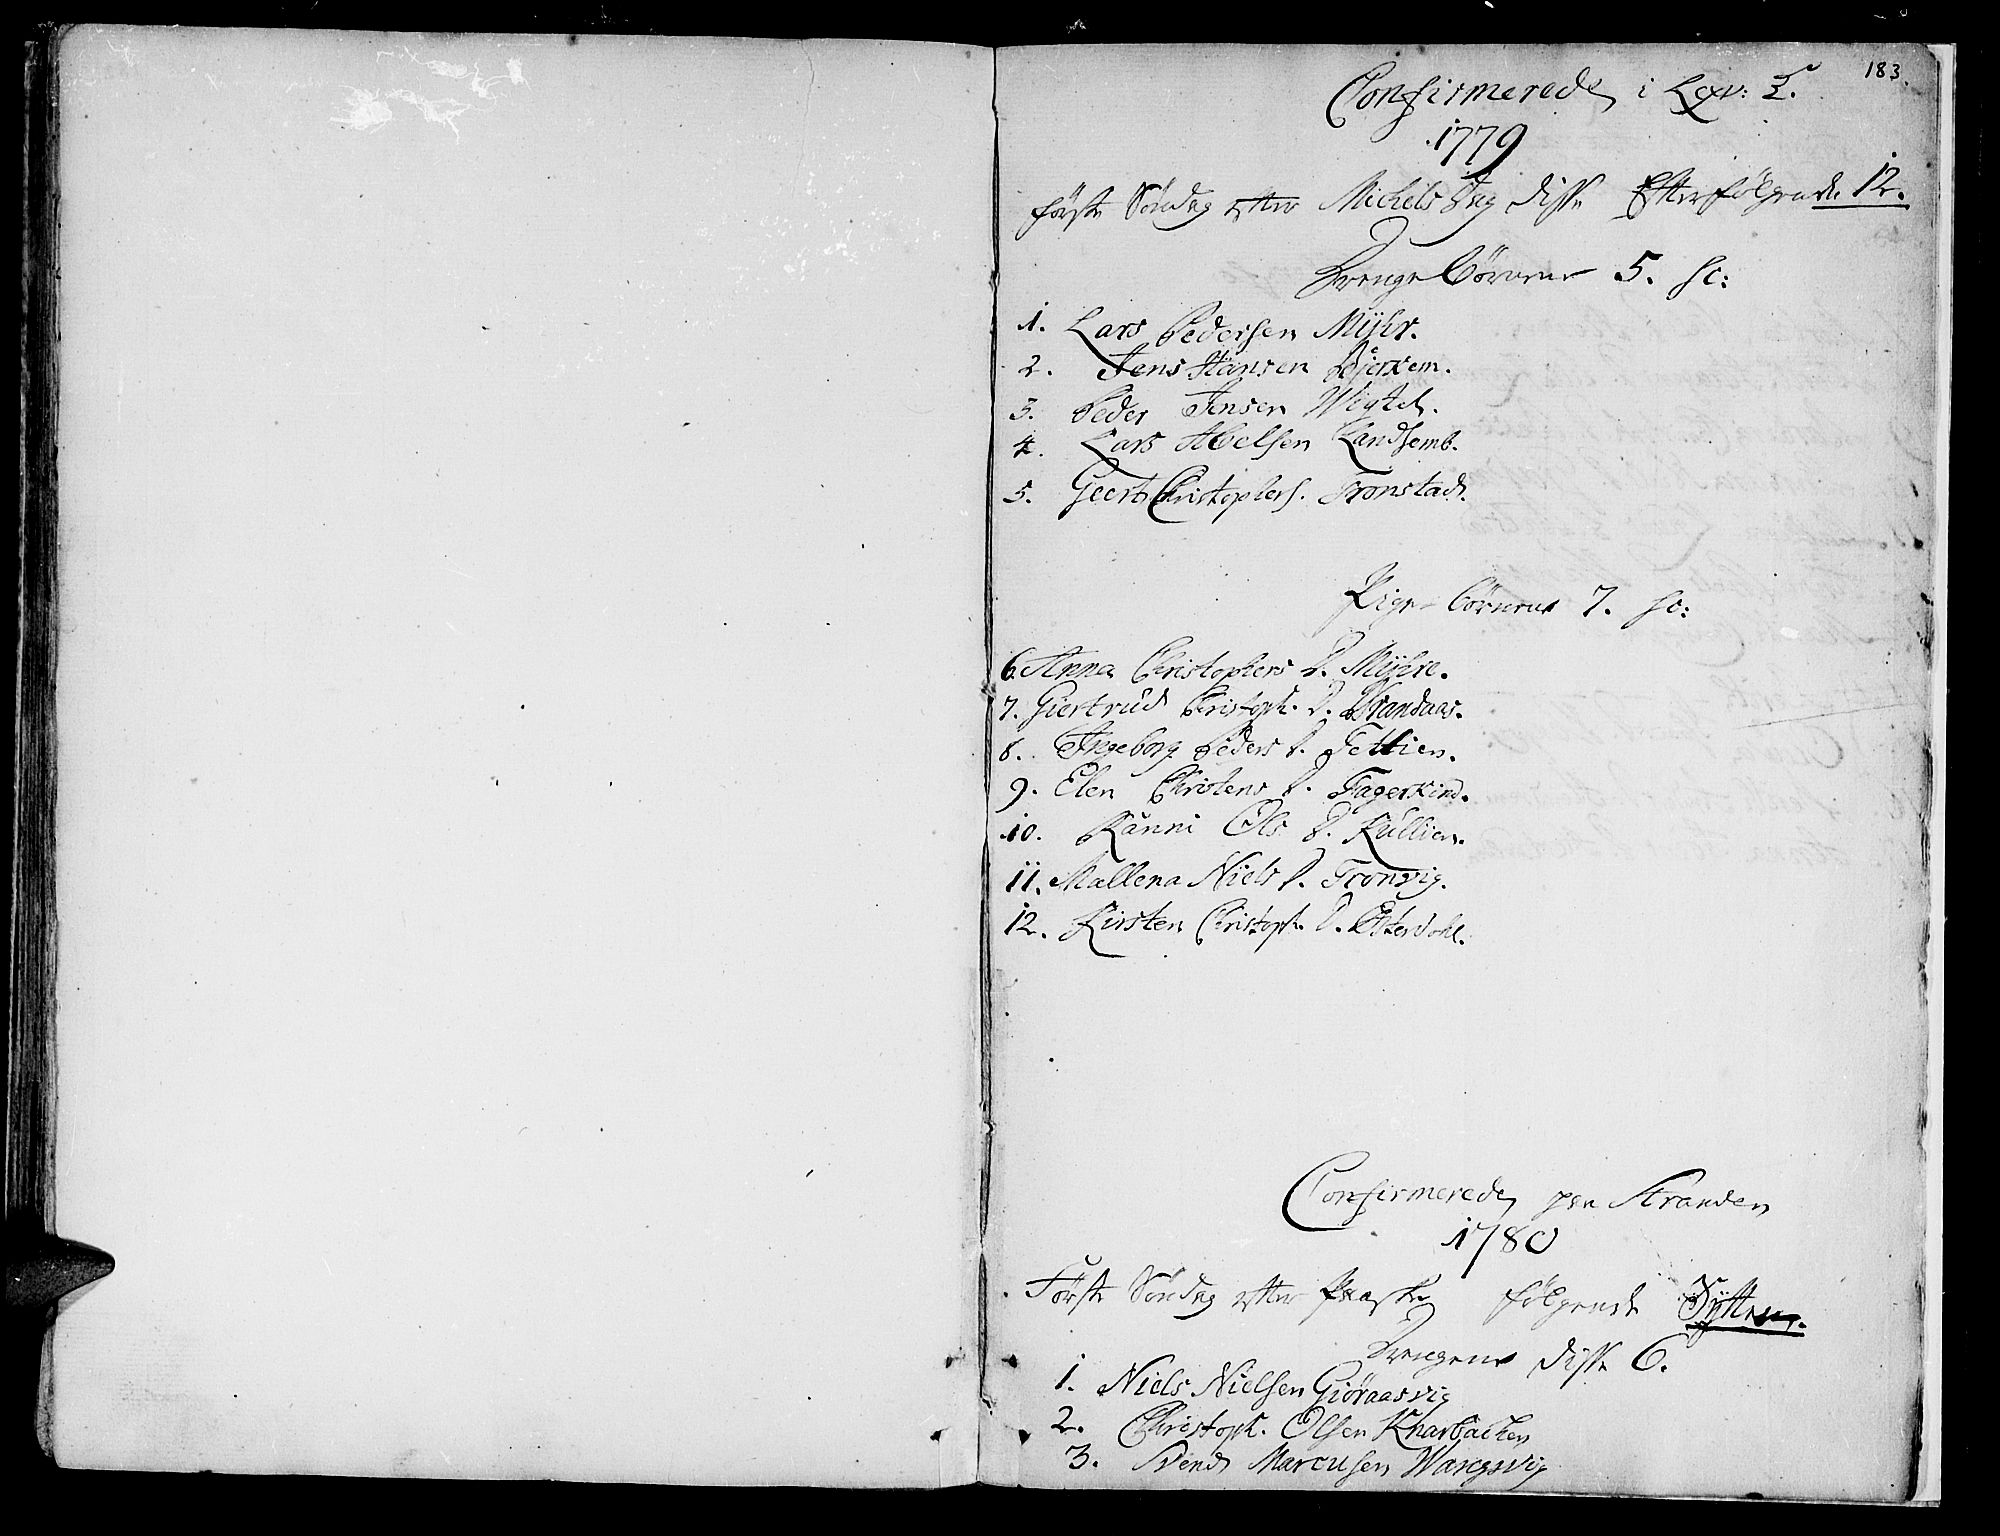 183.
Confirmerede i Lexv: T.
1779
förste Söndag efter Michels Dag disse Efterfölgende 12.
Drenge Börnene 5. sc:
1. Lars Pedersen Mÿhr.
2. Jens Hansen Bjerkem.
3. Peder Jensen Wigtel.
4. Lars Abelsen Landsemb.
5. Geert Christophers. Tronstad.
Pige Börnene 7. sc:
6. Anna Christophers D. Mÿhre.
7. Giertrud Christoph. D. Brandaas.
8. Ingeborg Peders D. Tettien.
9. Elen Christens D. Fagerkind.
10. Ranni Ols D. Kullien.
11. Mallena Niels D. Tronvig.
12. Kirsten Christoph. D. Österdohl.
Confirmerede paa Stranden
1780
Förste Söndag efter Paaske fölgende Sÿtten.
Drengene disse 6.
1. Niels Nielsen Giöraasvig
2. Christoph. Olsen Knarbachen
3. Svend Marcusen Wangsvig